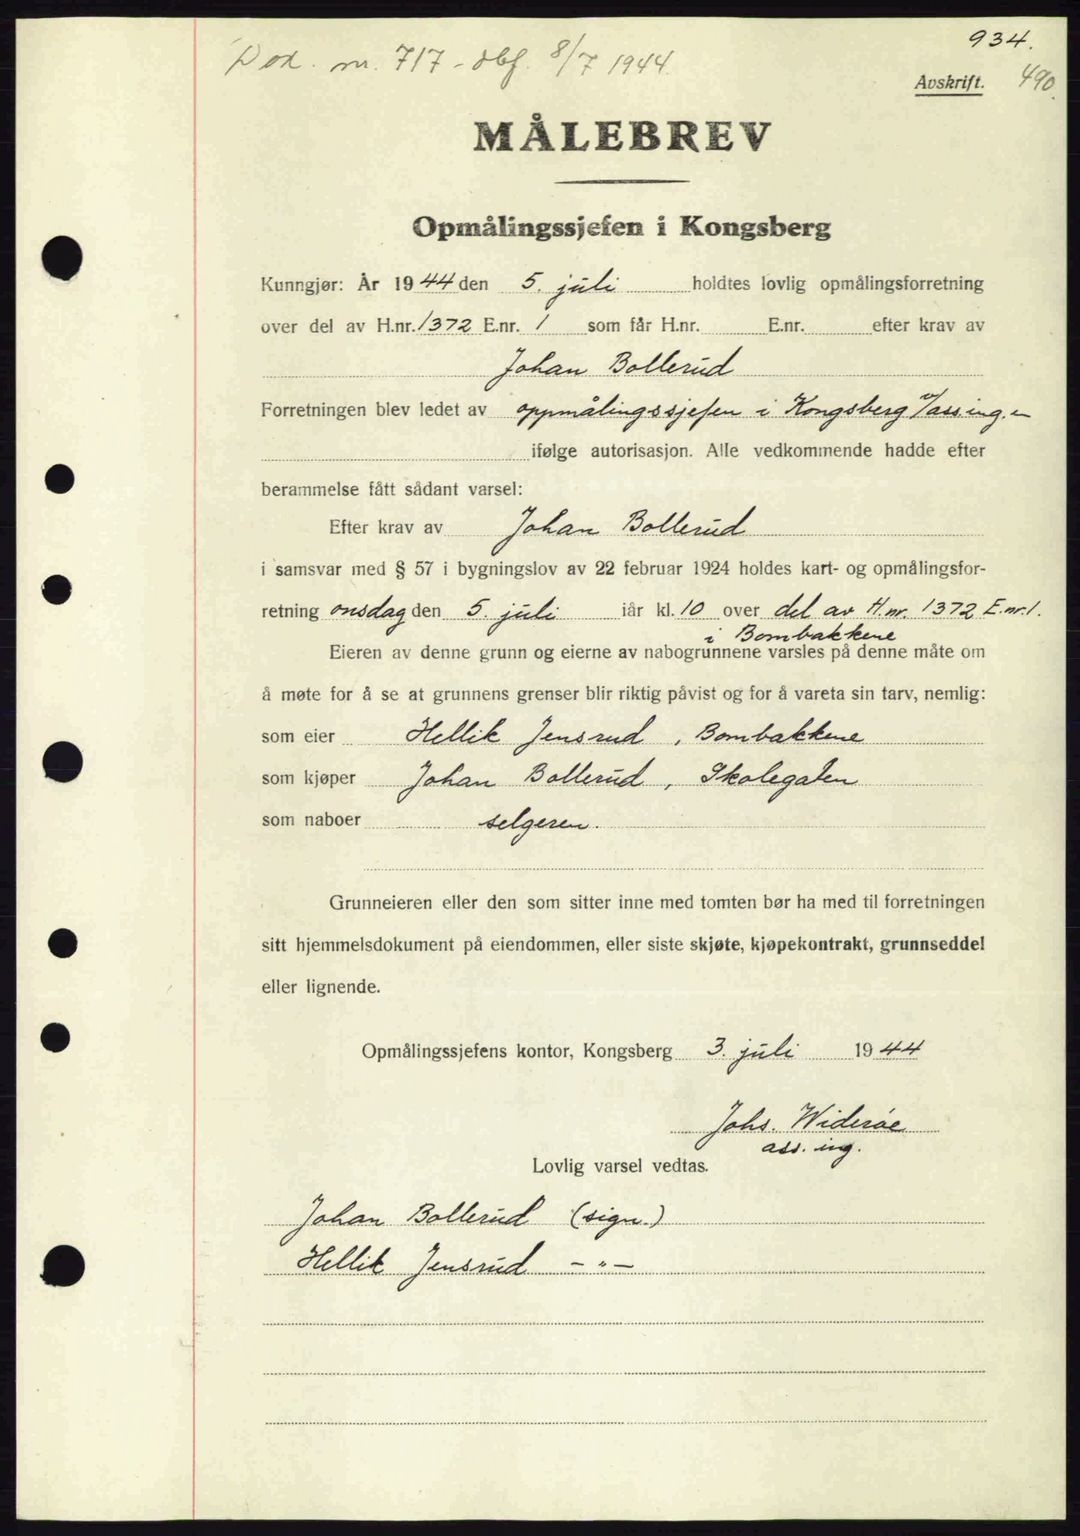 934.
Dok. nr. 717 - dbf. 8/7 1944.
Avskrift. 490.
MÅLEBREV
Opmålingssjefen i Kongsberg
Kunngjør: År 1944 den 5. juli holdtes lovlig opmålingsforretning
over del av H.nr. 1372 E.nr. 1 som får H.nr. E.nr. efter krav av
Johan Bollerud
Forretningen blev ledet av oppmålingssjefen i Kongsberg v/ass.ing.
ifølge autorisasjon. Alle vedkommende hadde efter
berammelse fått sådant varsel:
Efter krav av Johan Bollerud
i samsvar med § 57 i bygningslov av 22 februar 1924 holdes kart- og opmålingsfor-
retning onsdag den 5. juli iår kl. 10 over del av H.nr. 1372 E.nr. 1.
i Bombakkene
Eieren av denne grunn og eierne av nabogrunnene varsles på denne måte om
å møte for å se at grunnens grenser blir riktig påvist og for å vareta sin tarv, nemlig:
som eier Hellik Jensrud, Bombakkene
som kjøper Johan Bollerud, Skolegaten
som naboer selgeren.
Grunneieren eller den som sitter inne med tomten bør ha med til forretningen
sitt hjemmelsdokument på eiendommen, eller siste skjøte, kjøpekontrakt, grunnseddel
eller lignende.
Opmålingssjefens kontor, Kongsberg 3. juli 1944
Johs. Widerøe
ass. ing.
Lovlig varsel vedtas.
Johan Bollerud (sign.)
Hellik Jensrud - " -